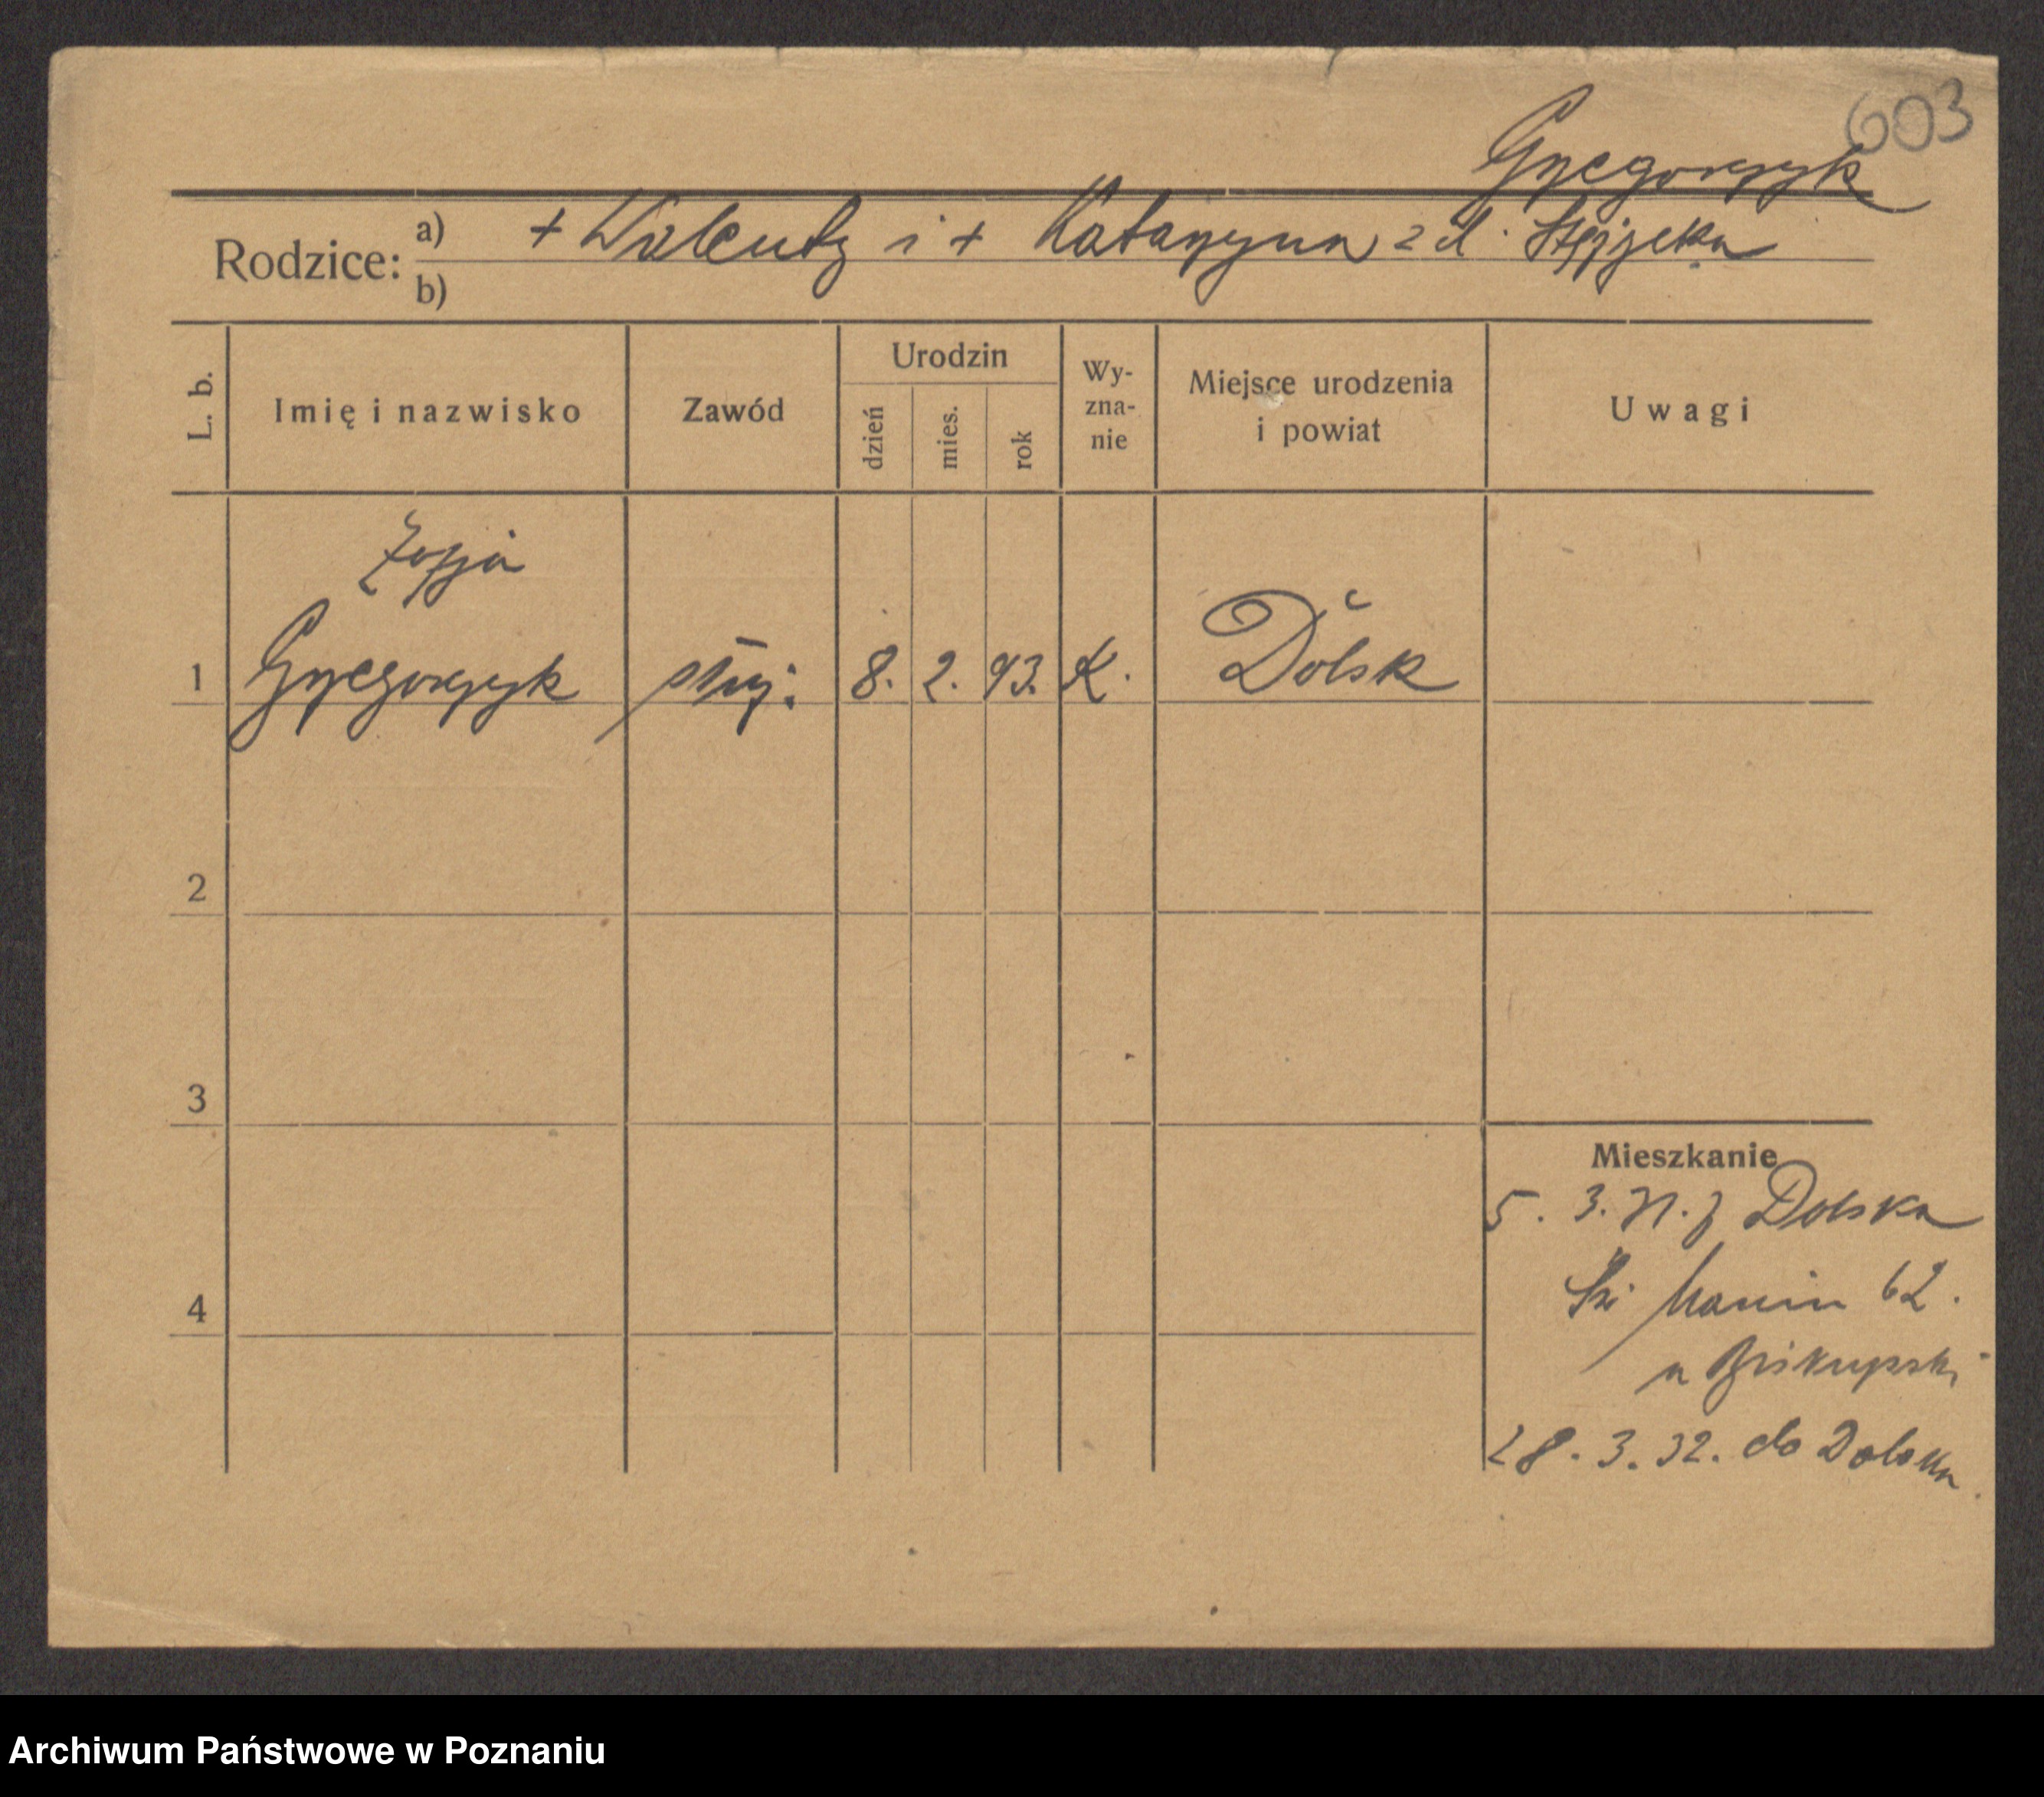 603
Grzegorzyk
Rodzice: a) + Walenty i + Katarzyna z d.
b)
L. b.
Imię i nazwisko
Zawód
Urodzin
dzień
mies.
rok
Wy-
zna-
nie
Miejsce urodzenia
i powiat
Uwagi
Zofja
1 Grzegorzyk służ. 8. 2. 93. K. Dolsk
2
3
4
Mieszkanie
5. 3. 31. z Dolska
Marcin 62.
u Biskupski
28. 3. 32. do Dolska
Archiwum Państwowe w Poznaniu